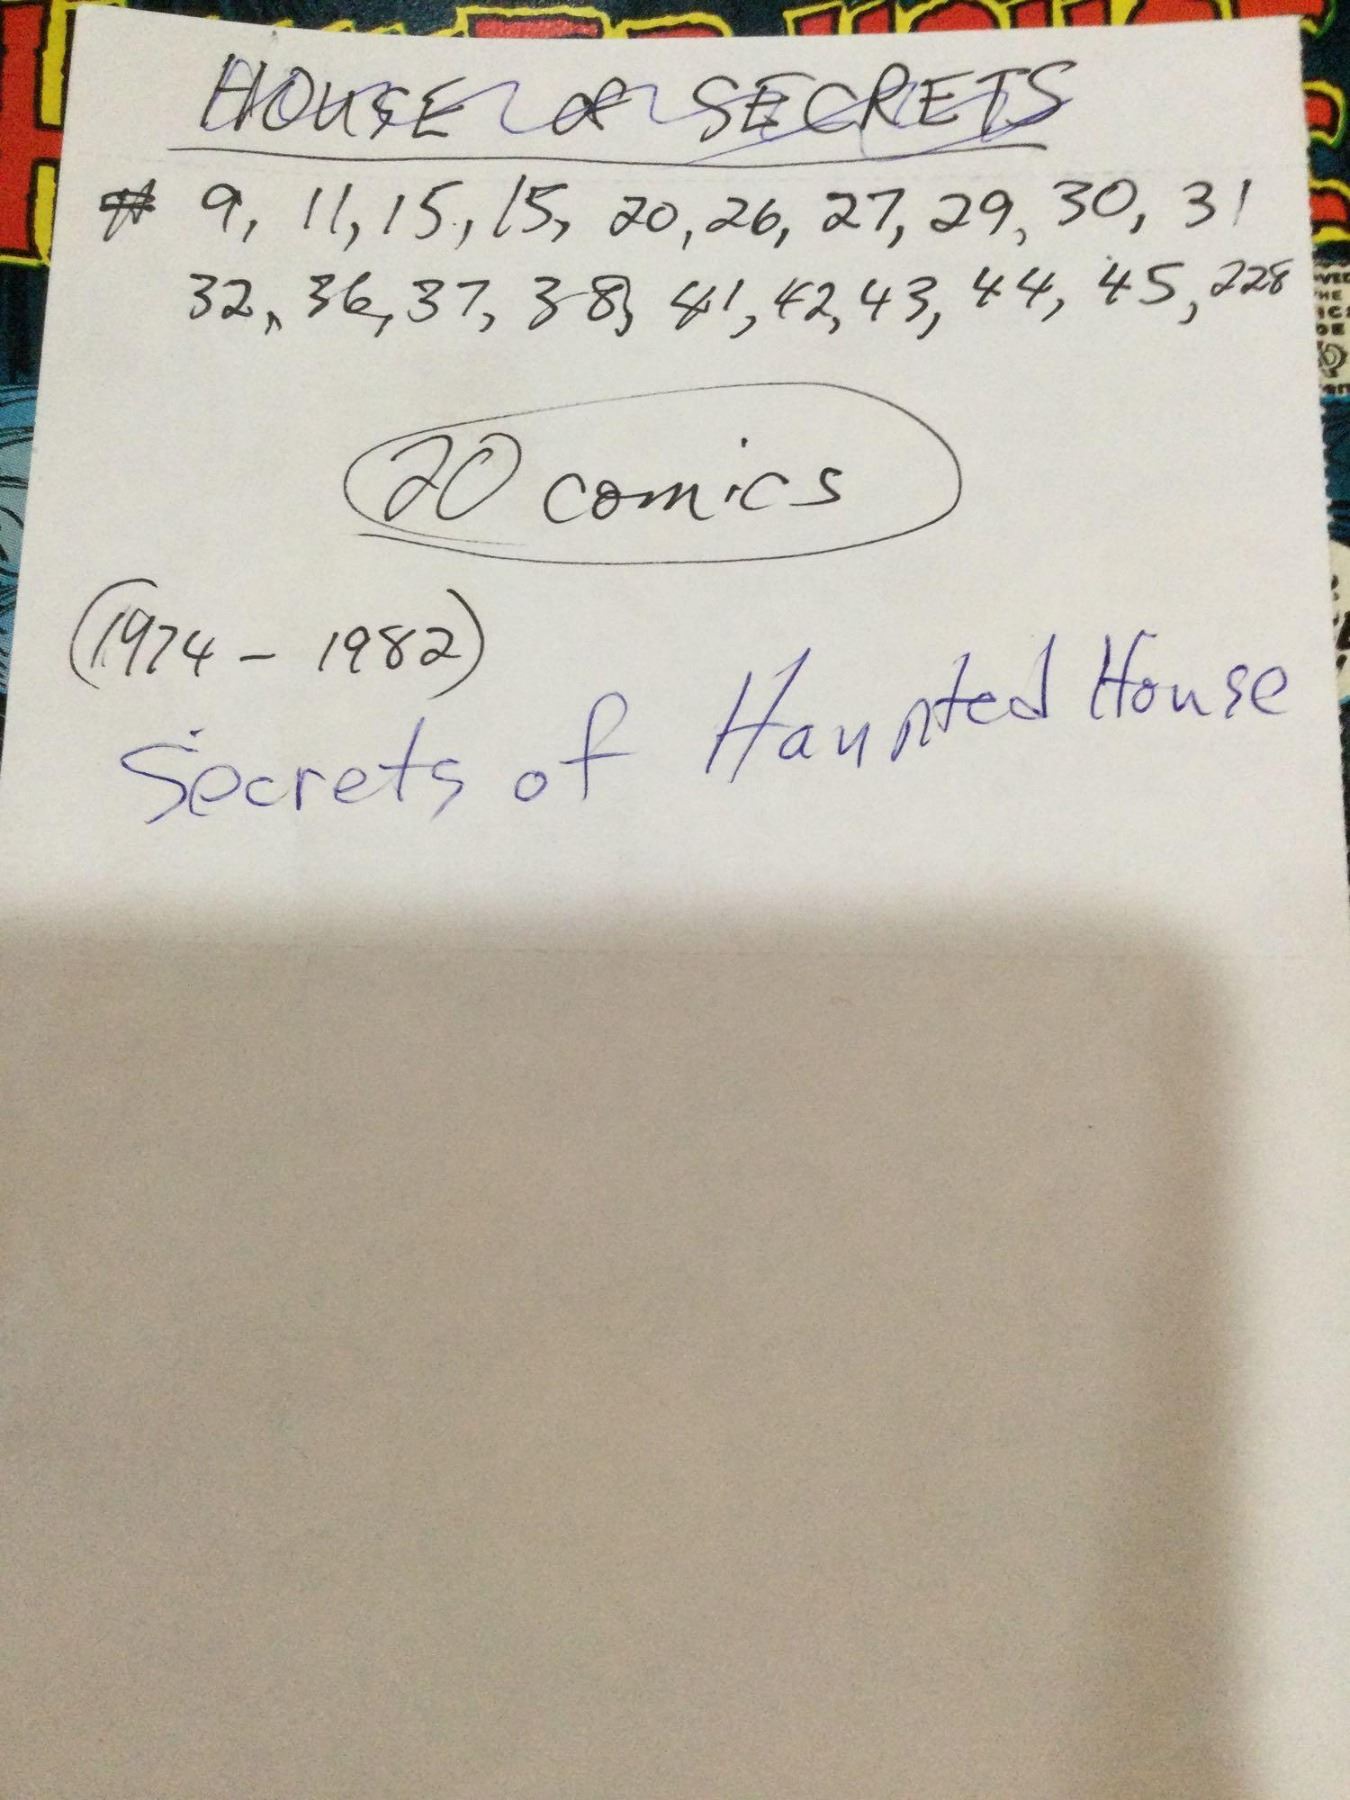 HOUSE of SECRETS
# 9, 11, 15, 15, 20, 26, 27, 29, 30, 31
32, 36, 37, 38, 41, 42, 43, 44, 45, 228
20 comics
(1974 - 1982)
Secrets of Haunted House